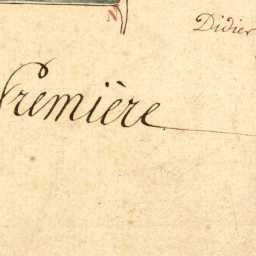 Didier
Première